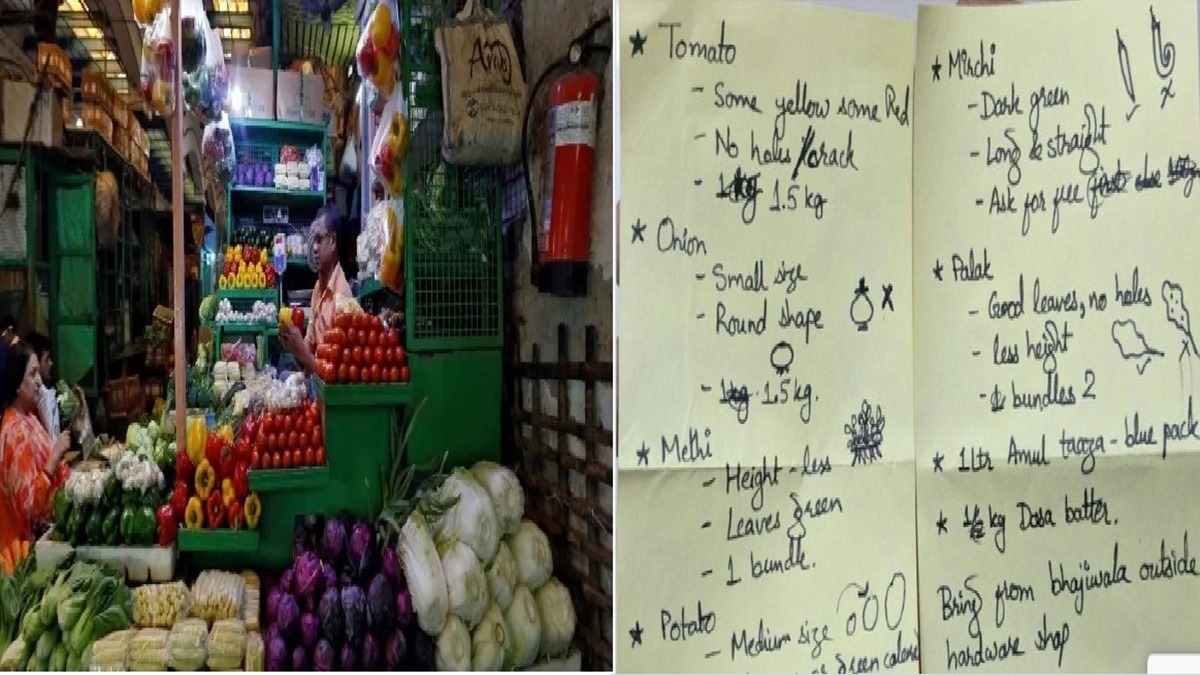 * Tomato
- Some yellow some Red
- No holes / crack
- 1.5 kg
* Onion
- Small size
- Round shape
x
- 1kg 1.5 kg.
* Methi
- Height - less
- Leaves green
- 1 bundle.
* Potato
- Medium size
* Mirchi
- Dark green
- Long & straight
- Ask for free
* Palak
- Good leaves, no holes
- less height
- bundles 2
* 1 ltr Amul taaza - blue pack
* 1/2 kg Dosa batter.
Bring from bhajiwala outside
hardware shop